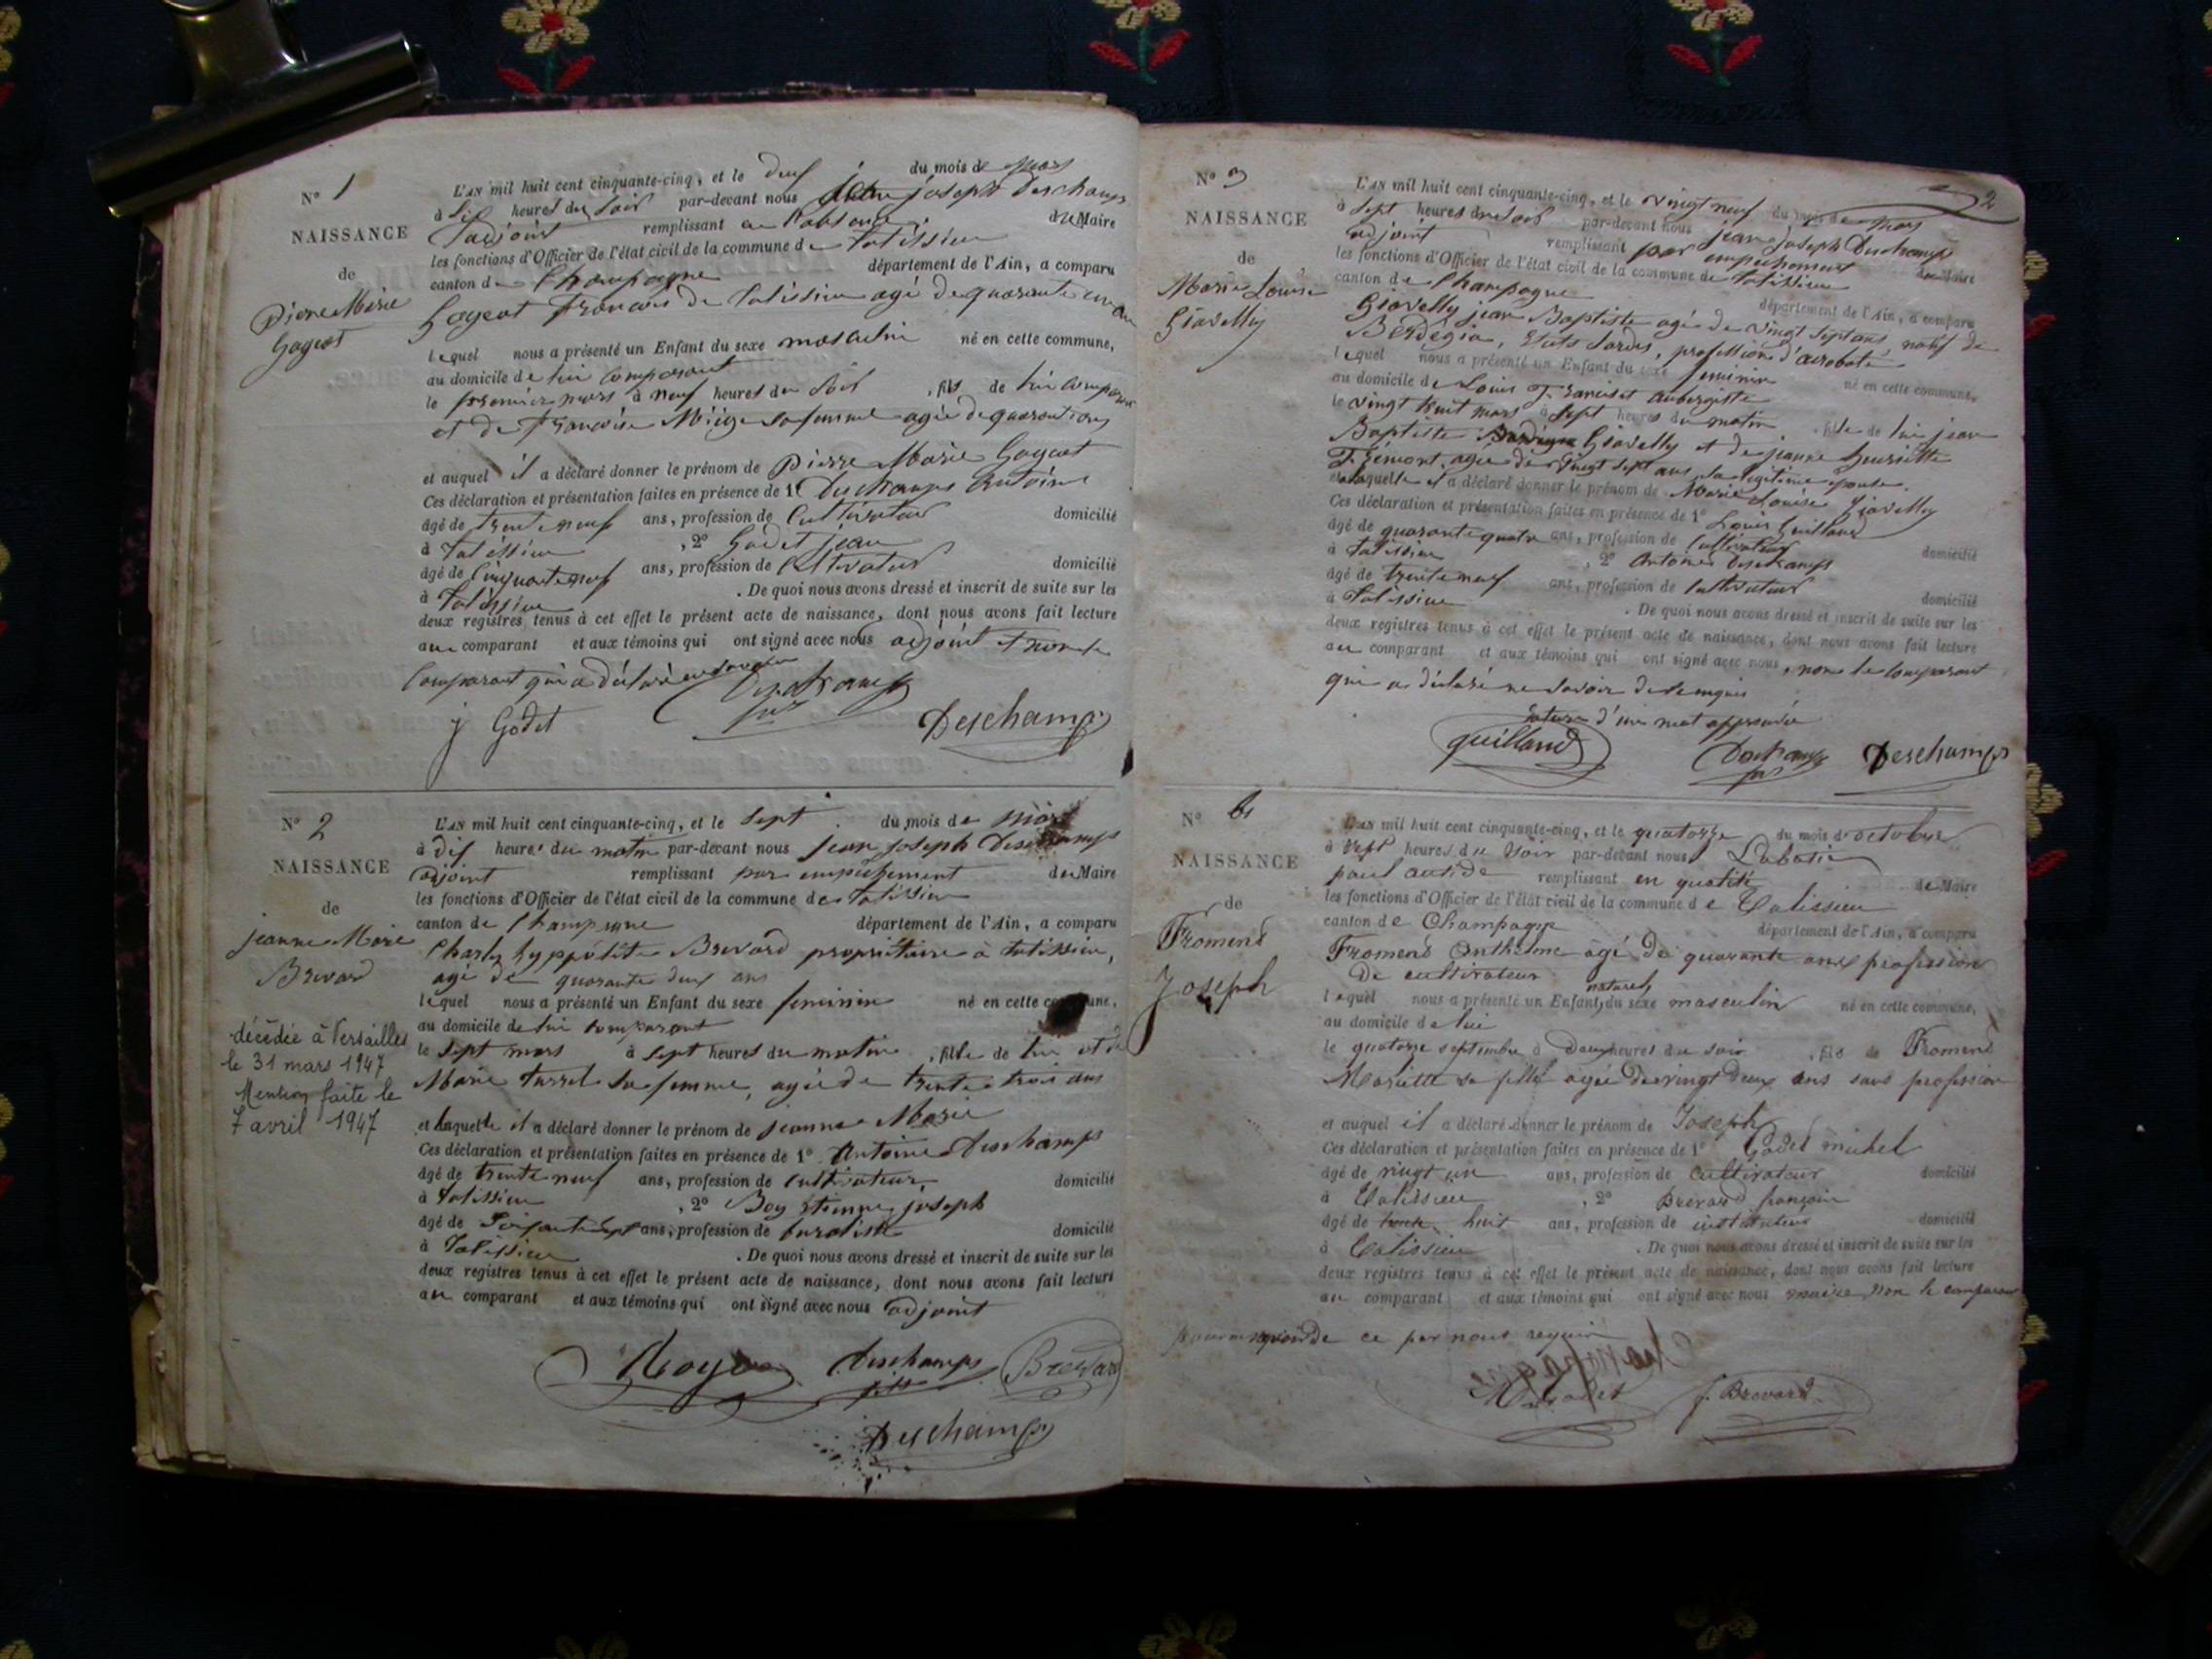 N° 1
NAISSANCE
de
Pierre Marie
Gogeat
L'AN mil huit cent cinquante-cinq, et le deux du mois de mars
à six heures du soir par-devant nous jean joseph Deschamps
l'adjoint remplissant en l'absence du Maire
les fonctions d'Officier de l'état civil de la commune de talissieu
canton de Champagne département de l'Ain, a comparu
Gogeat François de talissieu agé de quarante cinq ans
lequel nous a présenté un Enfant du sexe masculin né en cette commune,
au domicile de lui comparant
le premier mars à neuf heures du soir, fils de lui comparant
et de Françoise Miège sa femme agée de quarante ans
et auquel il a déclaré donner le prénom de Pierre Marie Gogeat
Ces déclaration et présentation faites en présence de 1° Deschamps Antoine
âgé de trente neuf ans, profession de Cultivateur domicilié
à talissieu, 2° Godet jean
âgé de Cinquante neuf ans, profession de Cultivateur domicilié
à talissieu. De quoi nous avons dressé et inscrit de suite sur les
deux registres tenus à cet effet le présent acte de naissance, dont nous avons fait lecture
au comparant et aux témoins qui ont signé avec nous adjoint et non le
comparant qui a déclaré ne savoir
Deschamps
j Godet
Deschamps
N° 2
NAISSANCE
de
jeanne Marie
Brevard
décédée à Versailles
le 31 mars 1947
Mention faite le
7 avril 1947
L'AN mil huit cent cinquante-cinq, et le sept du mois de mars
à dix heures du matin par-devant nous jean joseph Deschamps
adjoint remplissant par empêchement du Maire
les fonctions d'Officier de l'état civil de la commune de talissieu
canton de Champagne département de l'Ain, a comparu
Charles hyppolite Brevard propriétaire à talissieu,
agé de quarante deux ans
lequel nous a présenté un Enfant du sexe feminin né en cette commune,
au domicile de lui comparant
le sept mars à sept heures du matin, fille de lui et de
Marie turrel sa femme, agée de trente trois ans
et laquelle il a déclaré donner le prénom de jeanne Marie
Ces déclaration et présentation faites en présence de 1° Antoine Deschamps
âgé de trente neuf ans, profession de cultivateur domicilié
à talissieu, 2° Boy Etienne joseph
âgé de soixante sept ans, profession de buraliste domicilié
à talissieu. De quoi nous avons dressé et inscrit de suite sur les
deux registres tenus à cet effet le présent acte de naissance, dont nous avons fait lecture
au comparant et aux témoins qui ont signé avec nous adjoint
Deschamps fils Brevard
Deschamps
2
N° 3
NAISSANCE
de
Marie Louise
Giavelly
L'AN mil huit cent cinquante-cinq, et le vingt neuf du mois de mars
à sept heures du soir par-devant nous jean joseph Deschamps
adjoint remplissant par empechement du Maire
les fonctions d'Officier de l'état civil de la commune de talissieu
canton de Champagne département de l'Ain, a comparu
Giavelly jean Baptiste agé de vingt sept ans, natif de
Etats Sardes, profession d'acrobate
lequel nous a présenté un Enfant du sexe feminin né en cette commune,
au domicile de Louis aubergiste
le vingt huit mars à sept heures du matin, fille de lui jean
Baptiste Giavelly et de jeanne henriette
agée de vingt sept ans sa légitime épouse.
et laquelle il a déclaré donner le prénom de Marie Louise Giavelly
Ces déclaration et présentation faites en présence de 1° Louis Guilland
âgé de quarante quatre ans, profession de cultivateur domicilié
à talissieu, 2° Antoine Deschamps
âgé de trente neuf ans, profession de cultivateur domicilié
à talissieu. De quoi nous avons dressé et inscrit de suite sur les
deux registres tenus à cet effet le présent acte de naissance, dont nous avons fait lecture
au comparant et aux témoins qui ont signé avec nous, non le comparant
qui a déclaré ne savoir de ce requis
rature d'un mot approuvée
guilland Deschamps Deschamps
N°
NAISSANCE
de
Fromend
Joseph
L'AN mil huit cent cinquante-cinq, et le quatorze du mois d'octobre
à sept heures du soir par-devant nous Labatie
paul remplissant en qualité de Maire
les fonctions d'Officier de l'état civil de la commune de Talissieu
canton de Champagne département de l'Ain, a comparu
Fromend Anthelme agé de quarante ans profession
de cultivateur
lequel nous a présenté un Enfant naturel du sexe masculin né en cette commune,
au domicile de lui
le quatorze septembre à deux heures du soir, fils de Fromend
Mariette sa fille agée de vingt deux ans sans profession
et auquel il a déclaré donner le prénom de Joseph
Ces déclaration et présentation faites en présence de 1° Godet michel
âgé de vingt un ans, profession de cultivateur domicilié
à Talissieu, 2° Brevard françois
âgé de huit ans, profession de instituteur domicilié
à Talissieu. De quoi nous avons dressé et inscrit de suite sur les
deux registres tenus à cet effet le présent acte de naissance, dont nous avons fait lecture
au comparant et aux témoins qui ont signé avec nous maire non le comparant
de ce par nous requis
M Godet f. Brevard